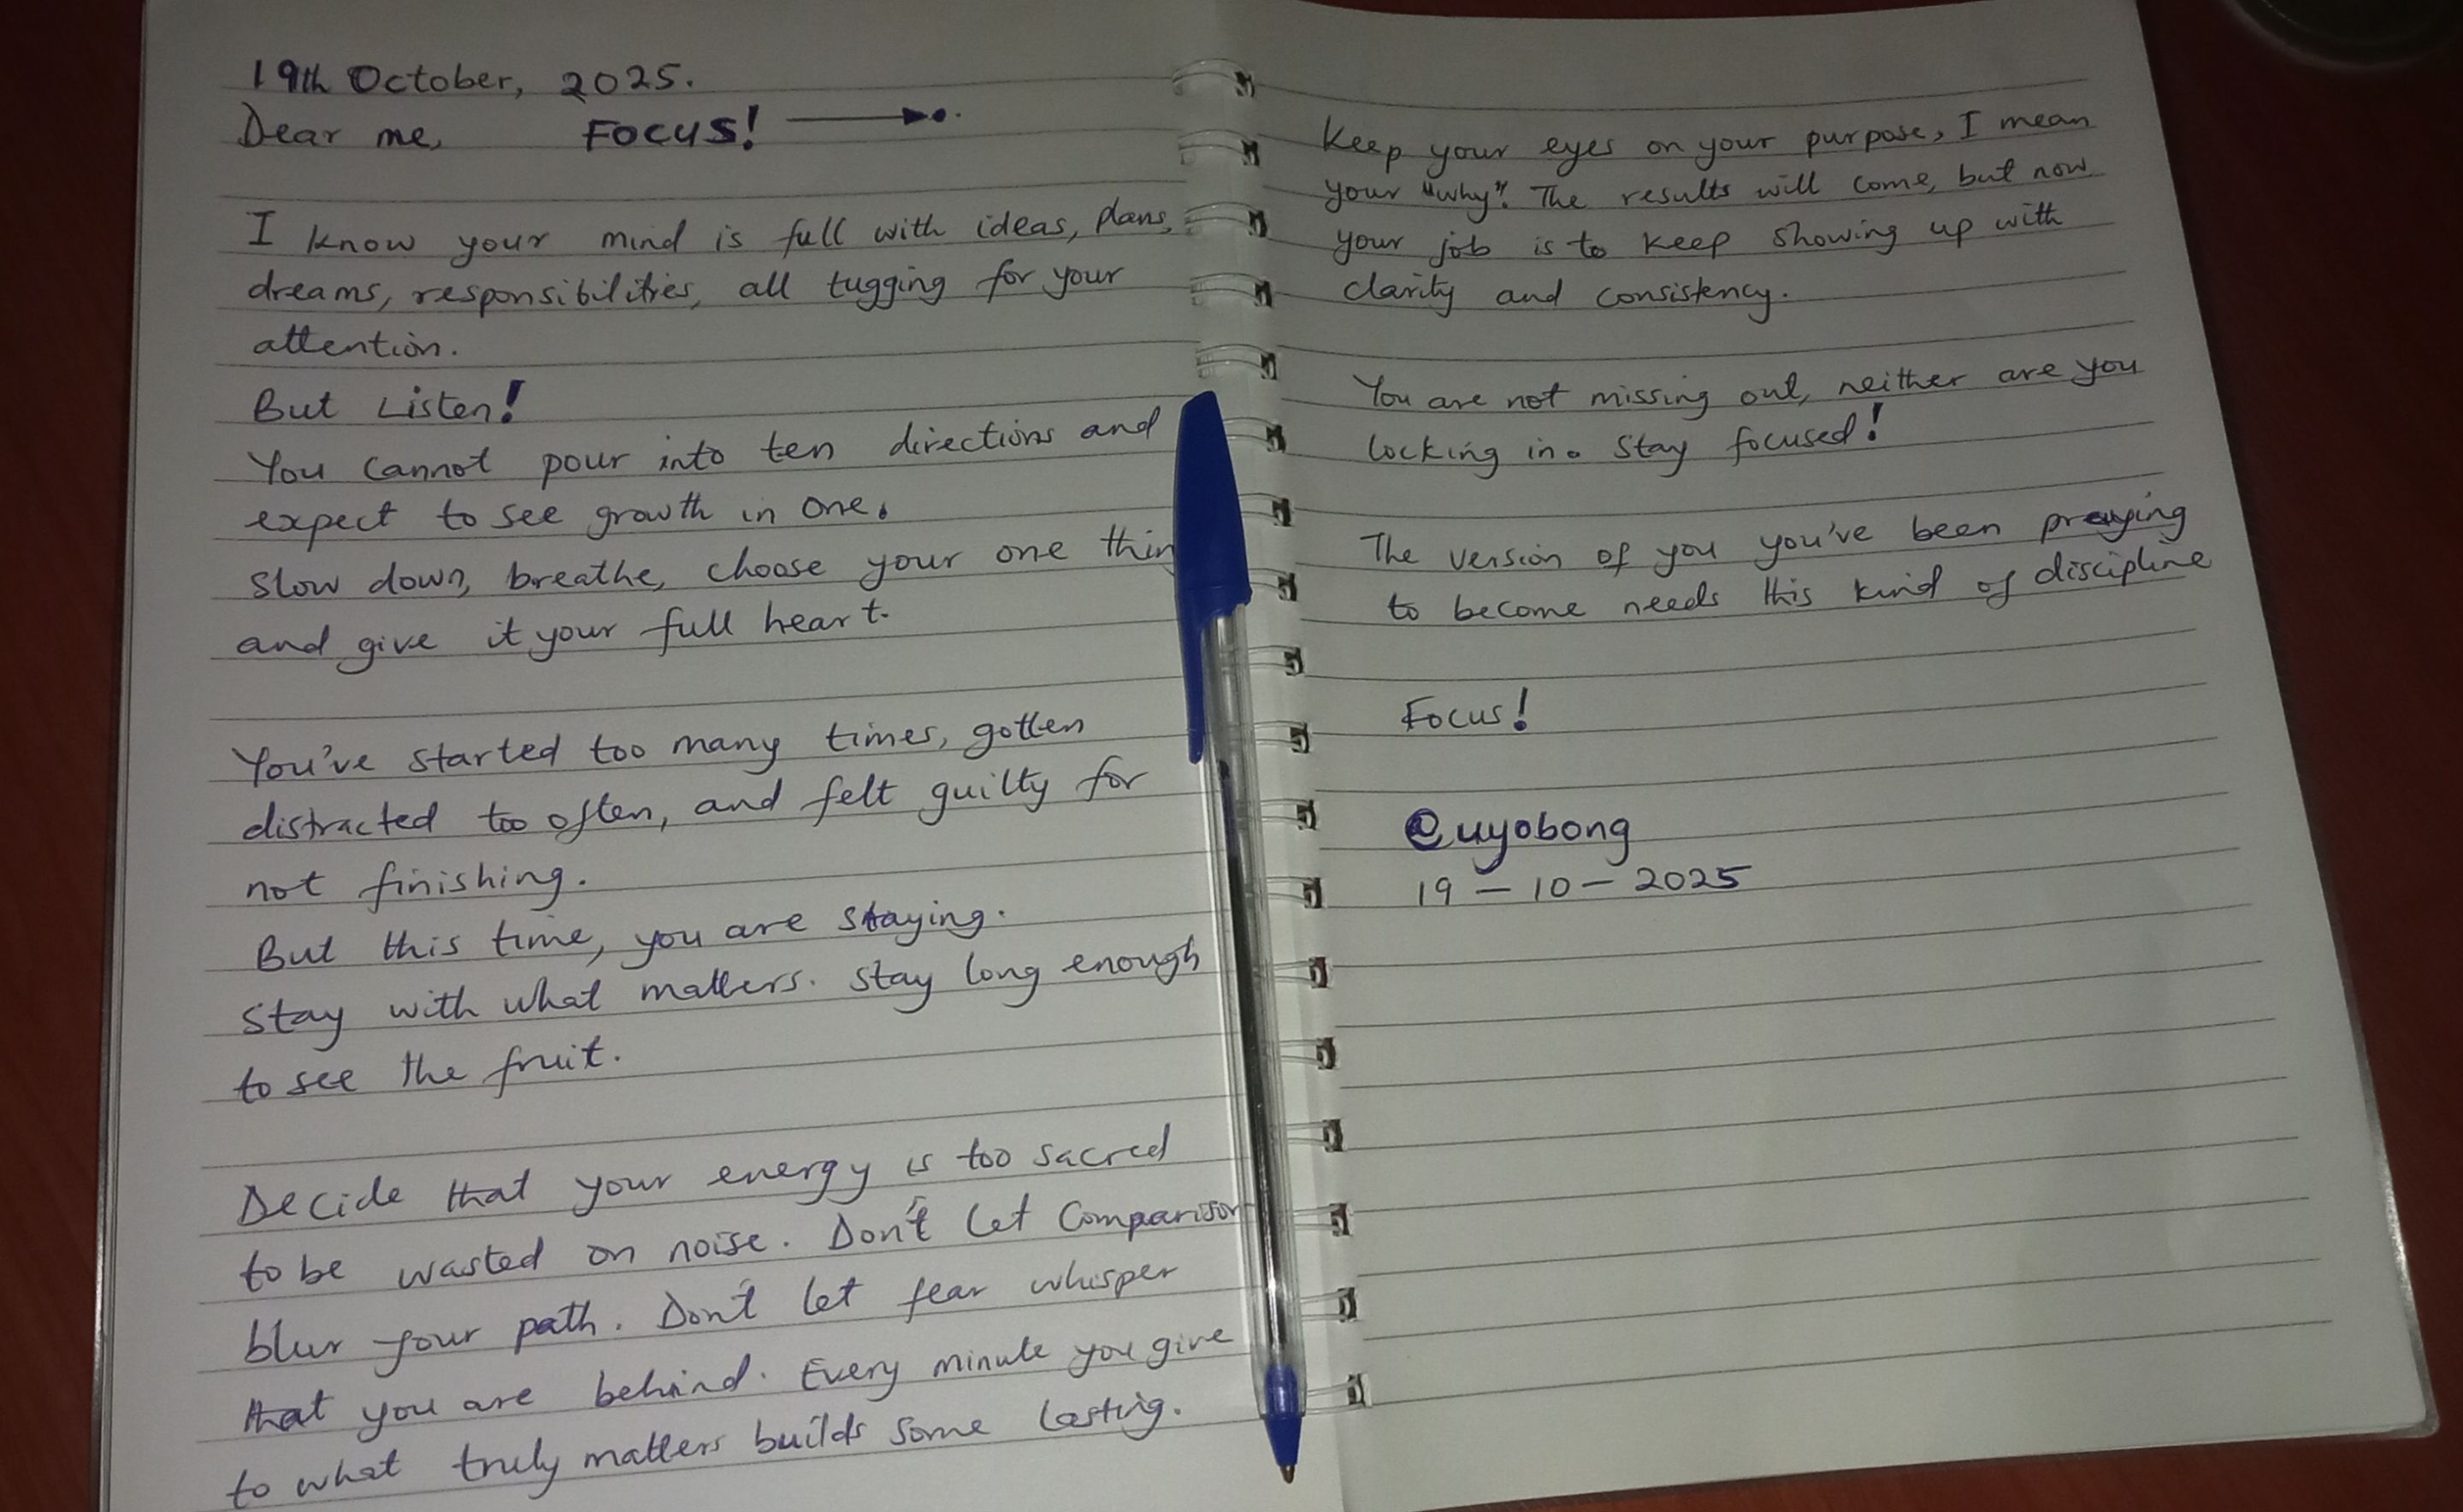 19th October, 2025.
Dear me, FOCUS!
I know your mind is full with ideas, plans,
dreams, responsibilities, all tugging for your
attention.
But Listen!
You cannot pour into ten directions and
expect to see growth in one.
Slow down, breathe, choose your one thin
and give it your full heart.
You've started too many times, gotten
distracted too often, and felt guilty for
not finishing.
But this time, you are staying.
Stay with what matters. Stay long enough
to see the fruit.
Decide that your energy is too sacred
to be wasted on noise. Don't let Comparison
blur your path. Don't let fear whisper
that you are behind. Every minute you give
to what truly matters builds some lasting.
Keep your eyes on your purpose, I mean
your "why". The results will come, but now
your job is to keep showing up with
clarity and consistency.
You are not missing out, neither are you
locking in. Stay focused!
The version of you you've been praying
to become needs this kind of discipline
Focus!
@uyobong
19-10-2025